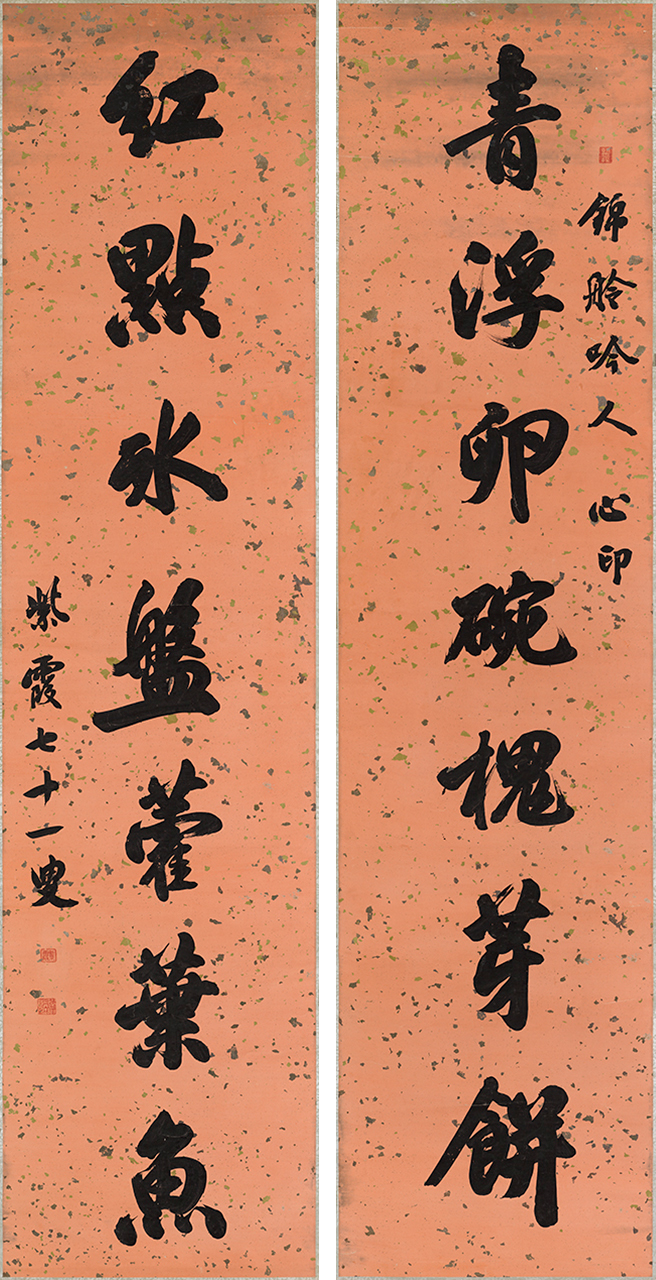 錦舲吟人心印
青浮卵碗槐芽餅
紅點冰盤藿葉魚
紫霞七十一叟